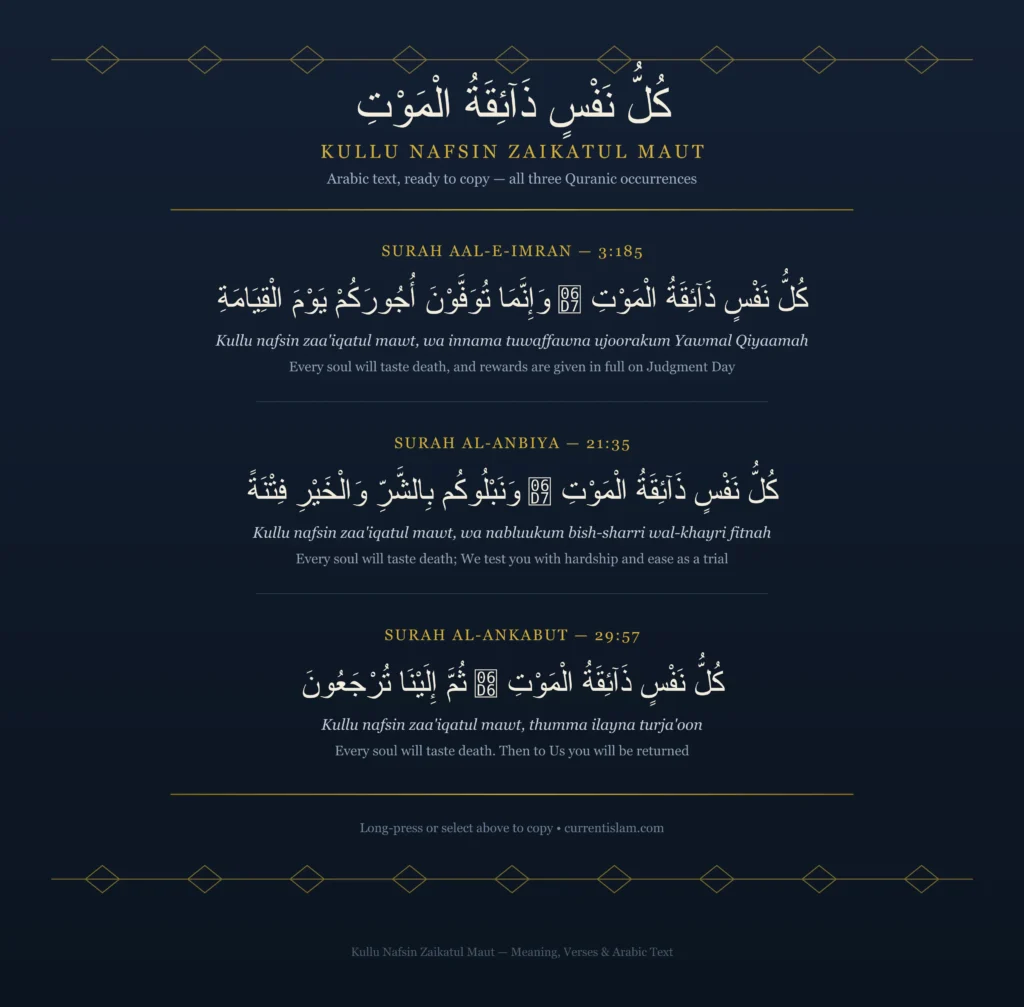 كُلُّ نَفْسٍ ذَآئِقَةُ الْمَوْتِ
KULLU NAFSIN ZAIKATUL MAUT
Arabic text, ready to copy — all three Quranic occurrences
SURAH AAL-E-IMRAN — 3:185
كُلُّ نَفْسٍ ذَآئِقَةُ الْمَوْتِ ۗ وَإِنَّمَا تُوَفَّوْنَ أُجُورَكُمْ يَوْمَ الْقِيَامَةِ
Kullu nafsin zaa'iqatul mawt, wa innama tuwaffawna ujoorakum Yawmal Qiyaamah
Every soul will taste death, and rewards are given in full on Judgment Day
SURAH AL-ANBIYA — 21:35
كُلُّ نَفْسٍ ذَآئِقَةُ الْمَوْتِ ۗ وَنَبْلُوكُم بِالشَّرِّ وَالْخَيْرِ فِتْنَةً
Kullu nafsin zaa'iqatul mawt, wa nabluukum bish-sharri wal-khayri fitnah
Every soul will taste death; We test you with hardship and ease as a trial
SURAH AL-ANKABUT — 29:57
كُلُّ نَفْسٍ ذَآئِقَةُ الْمَوْتِ ۖ ثُمَّ إِلَيْنَا تُرْجَعُونَ
Kullu nafsin zaa'iqatul mawt, thumma ilayna turja'oon
Every soul will taste death. Then to Us you will be returned
Long-press or select above to copy • currentislam.com
Kullu Nafsin Zaikatul Maut — Meaning, Verses & Arabic Text